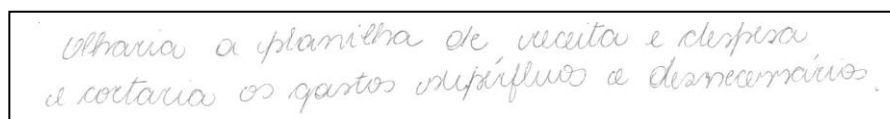 olharia a planilha de receita e despesa
e cortaria os gastos supérfluos e desnecessários.